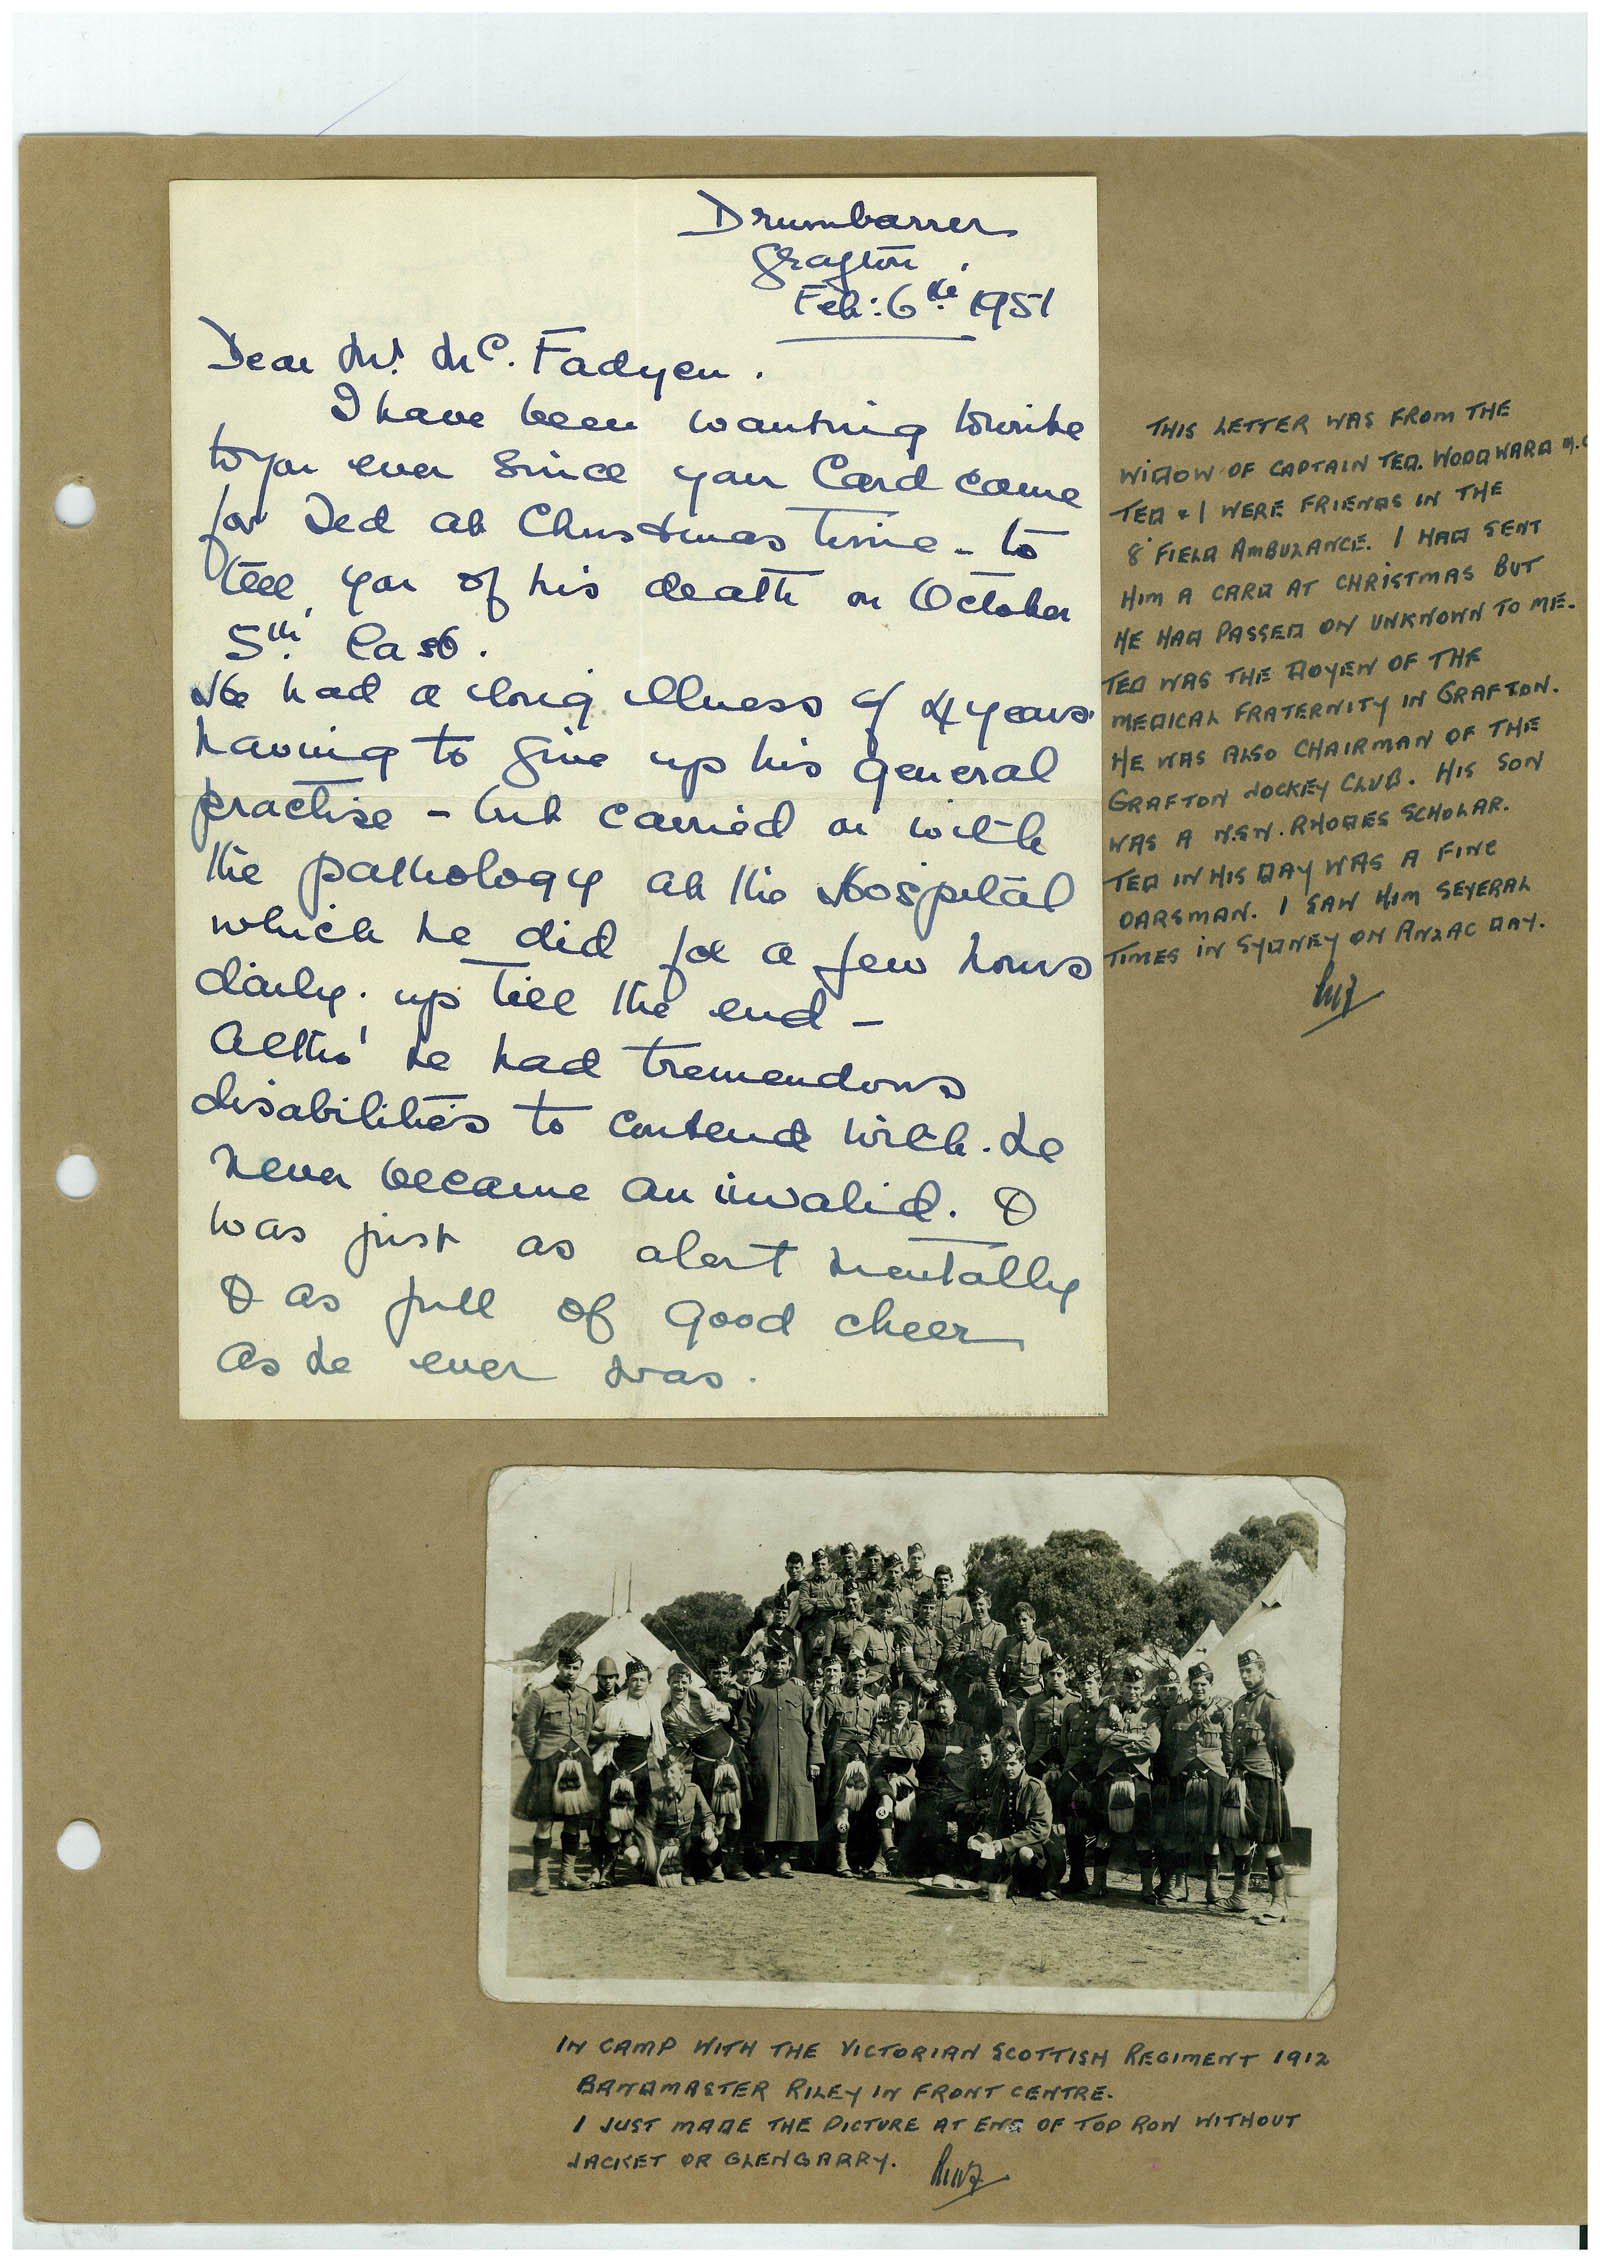 Drumbarrer
Grafton.
Feb: 6th 1951
Dear Mr. Mc. Fadyen.
I have been wanting to write
to you ever since your Card came
for Ted at Christmas time - to
tell you of his death on October
5th last.
He had a long illness of 4 years.
having to give up his general
practise - but carried on with
the pathology at the Hospital
which he did for a few hours
daily. up till the end -
Altho' he had tremendous
disabilities to contend with. he
never became an invalid. &
was just as alert mentally
& as full of good cheer
as he ever was.
THIS LETTER WAS FROM THE
WIDOW OF CAPTAIN TED. WOODWARD M.C
TED & I WERE FRIENDS IN THE
8' FIELD AMBULANCE. I HAD SENT
HIM A CARD AT CHRISTMAS BUT
HE HAD PASSED ON UNKNOWN TO ME.
TED WAS THE DOYEN OF THE
MEDICAL FRATERNITY IN GRAFTON.
HE WAS ALSO CHAIRMAN OF THE
GRAFTON JOCKEY CLUB. HIS SON
WAS A N.S.W. RHODES SCHOLAR.
TED IN HIS DAY WAS A FINE
OARSMAN. I SAW HIM SEVERAL
TIMES IN SYDNEY ON ANZAC DAY.
IN CAMP WITH THE VICTORIAN SCOTTISH REGIMENT 1912
BANDMASTER RILEY IN FRONT CENTRE.
I JUST MADE THE PICTURE AT END OF TOP ROW WITHOUT
JACKET OR GLENGARRY.